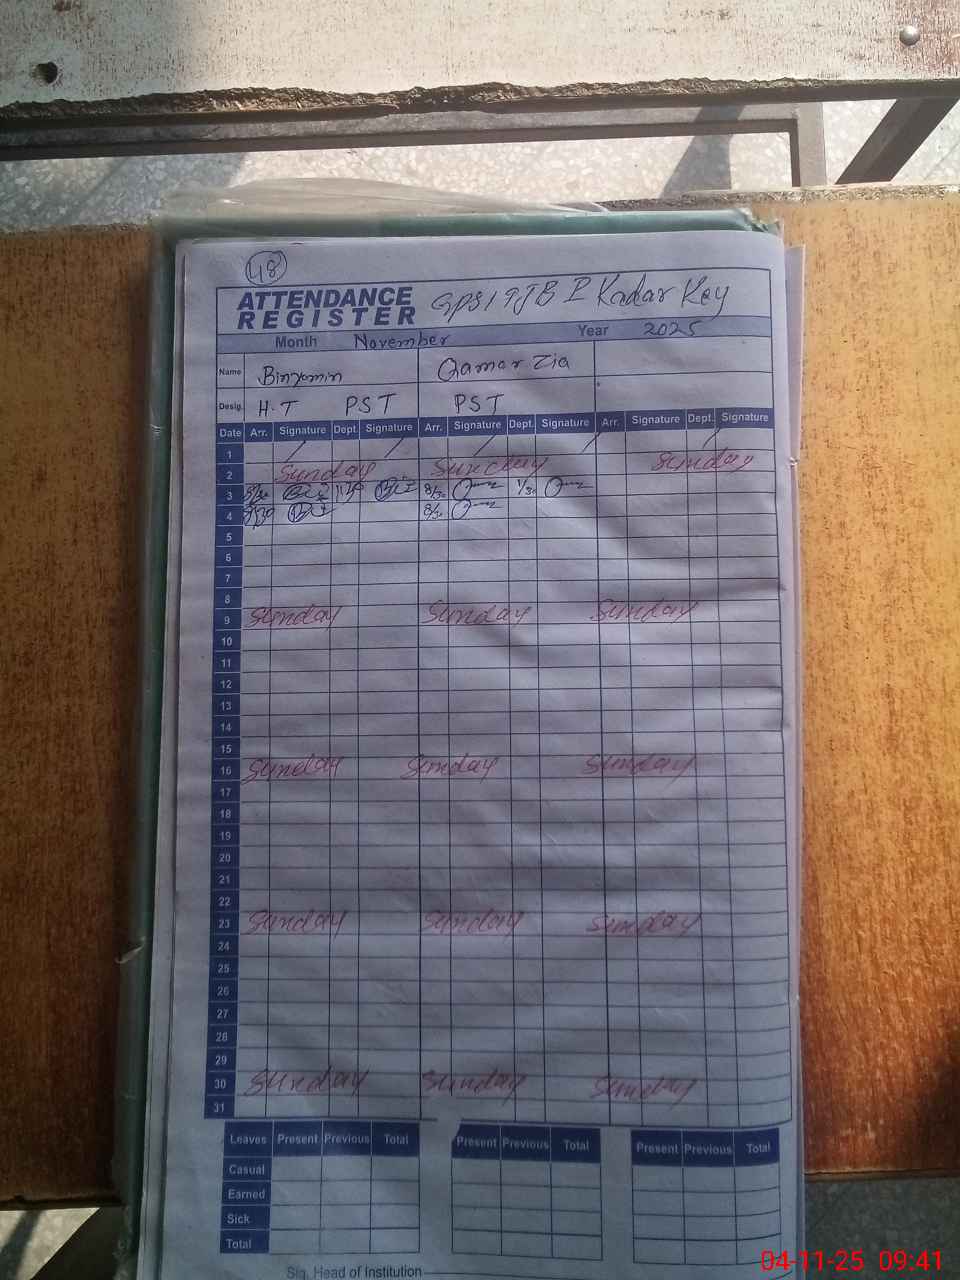 48
ATTENDANCE REGISTER GPS 19JB I Kadar Key
Month November Year 2025
Name Binyamin Qamar Zia
Desig. H.T PST PST
Date Arr. Signature Dept. Signature Arr. Signature Dept. Signature Arr. Signature Dept. Signature
1
2 Sunday Sunday Sunday
3 8/30 8/30 1/30
4 8/30 8/30
5
6
7
8
9 Sunday Sunday Sunday
10
11
12
13
14
15
16 Sunday Sunday Sunday
17
18
19
20
21
22
23 Sunday Sunday Sunday
24
25
26
27
28
29
30 Sunday Sunday Sunday
31
Leaves Present Previous Total Present Previous Total Present Previous Total
Casual
Earned
Sick
Total
Sig. Head of Institution
04-11-25 09:41